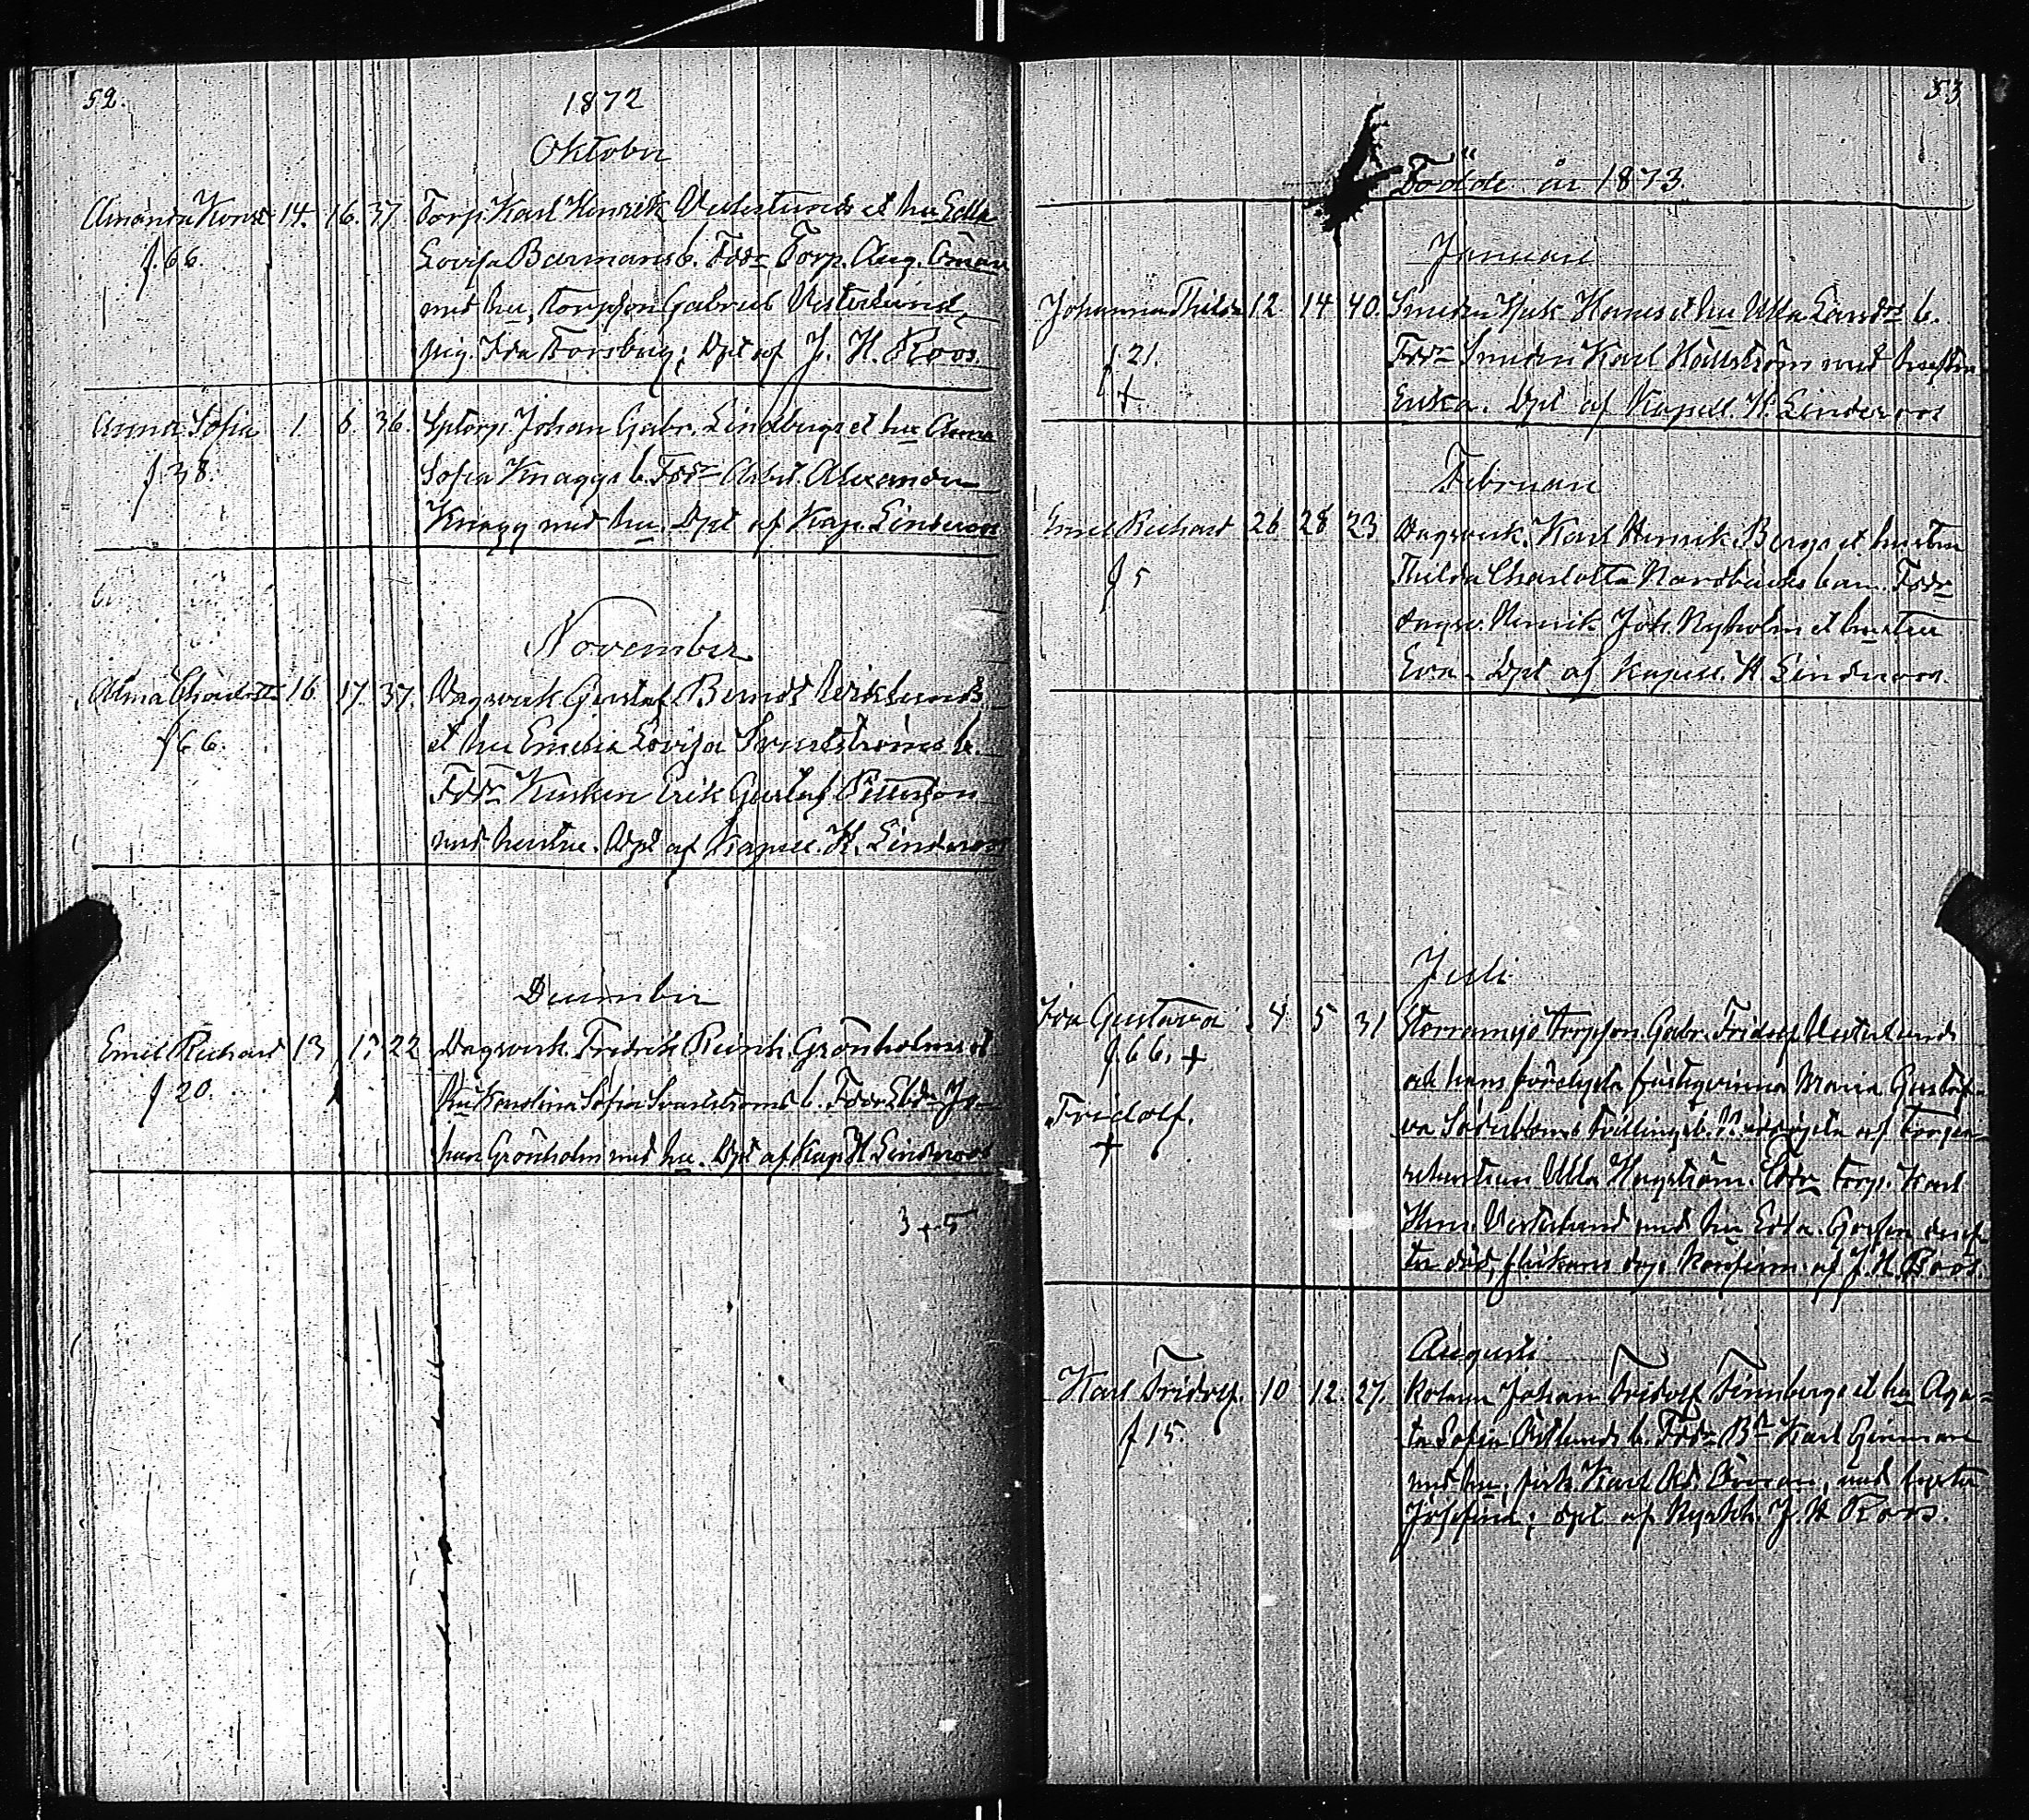 52.
1872
Oktober
Amanda Konst. 14. 16. 37. Torp. Karl Henrik Vesterlunds et hu Edla
f 66. Lovisa Barmans b. Fddr Torp. Aug. Öman
med hu, torpson Gabriel Vesterlund,
pig. Ida Forsberg; Dpt af J. H. Roos.
Anna Sofia 1. 6. 36. Sptorp. Johan Gabr. Lindbergs et hu Anna
f 38. Sofia Knaggs b. Fddr Arbet. Alexander
Knagg med hu. Dpt af Kap. Linderoos
November
Alma Charlotta 16. 17. 37. Dagsverk. Gustaf Berndt Wiklunds
f 66. et hu Emilia Lovisa b.
Fddr Kusken Erik Gustaf Petterson
med hustru. Dpt af Kapell. H. Linderoos
December
Emel Richard 13 22 Dagsverk. Fredrik Reinh. Grönholms et
f 20. hu Karolina Sofia b. Fddr Jo-
han Grönholm med hu. Dpt af Kap. H Linderoos
3 + 5
53
Födde år 1873.
Januari
Johanna Thilda 12. 14 40. Smeden et hu Ulla b.
f 21. Fddr Smeden Karl Hällström med hustru
+ Erika. Dpt af Kapell. H. Linderoos
Februari
Emel Richard 26 28 23 Dagsverk. Karl Henrik Bergs et hustru
f 5 Thilda Charlotta Nordbäcks barn. Fddr
dagsv. Henrik Joh. Nyholm et hustru
Eva. Dpt af Kapell. H Linderoos.
Juli
Ida Gustava 4 5 31 torpson Gabr. Fridolf Vesterlunds
f 66. + och hans fästeqvinna Maria Gustaf-
Fridolf. va Söderbloms tvillingb. af Torpa-
+ rehustrun Ulla Hagström. Fddr Torp. Karl
Henr. Vesterlund med hu Edla. Gossen
död, flickans dop konfirm. af J. H. Roos.
Augusti
Karl Fridolf. 10 12. 27. Johan Fridolf Finnbergs et hu Aga-
f 15. ta Sofia b. Fddr Bn Karl Ginman
med hu, Karl Ad. med syster
Josefina; dpt af Kyrkoh. J H Roos.